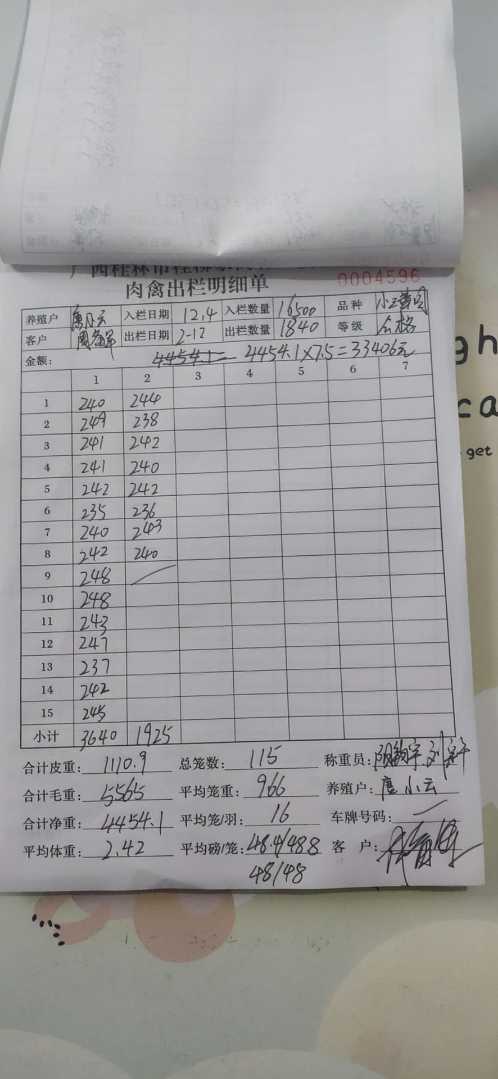 肉禽出栏明细单
0004596
养殖户 唐小云 入栏日期 12.4 入栏数量 16500 品种
客户 出栏日期 2-12 出栏数量 1840 等级 合格
金额: 4454.1= 4454.1×7.5=33406元
1 2 3 4 5 6 7
1 240 244
2 249 238
3 241 242
4 241 240
5 242 242
6 235 236
7 240 243
8 242 240
9 248
10 248
11 243
12 247
13 237
14 242
15 245
小计 3640 1925
合计皮重: 1110.9 总笼数: 115 称重员:
合计毛重: 5565 平均笼重: 966 养殖户: 唐小云
合计净重: 4454.1 平均笼/羽: 16 车牌号码:
平均体重: 2.42 平均磅/笼: 48.4/48.8 客 户:
48/48
gh
ca
get